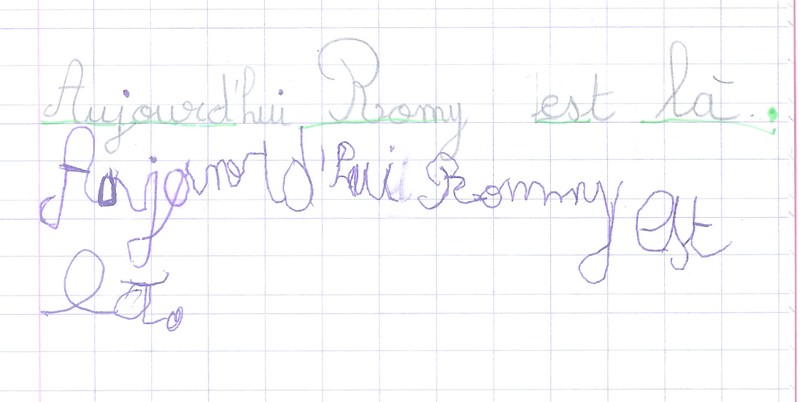 Aujourd'hui Romy est là.
Aujourd'hui Rommy est
là.